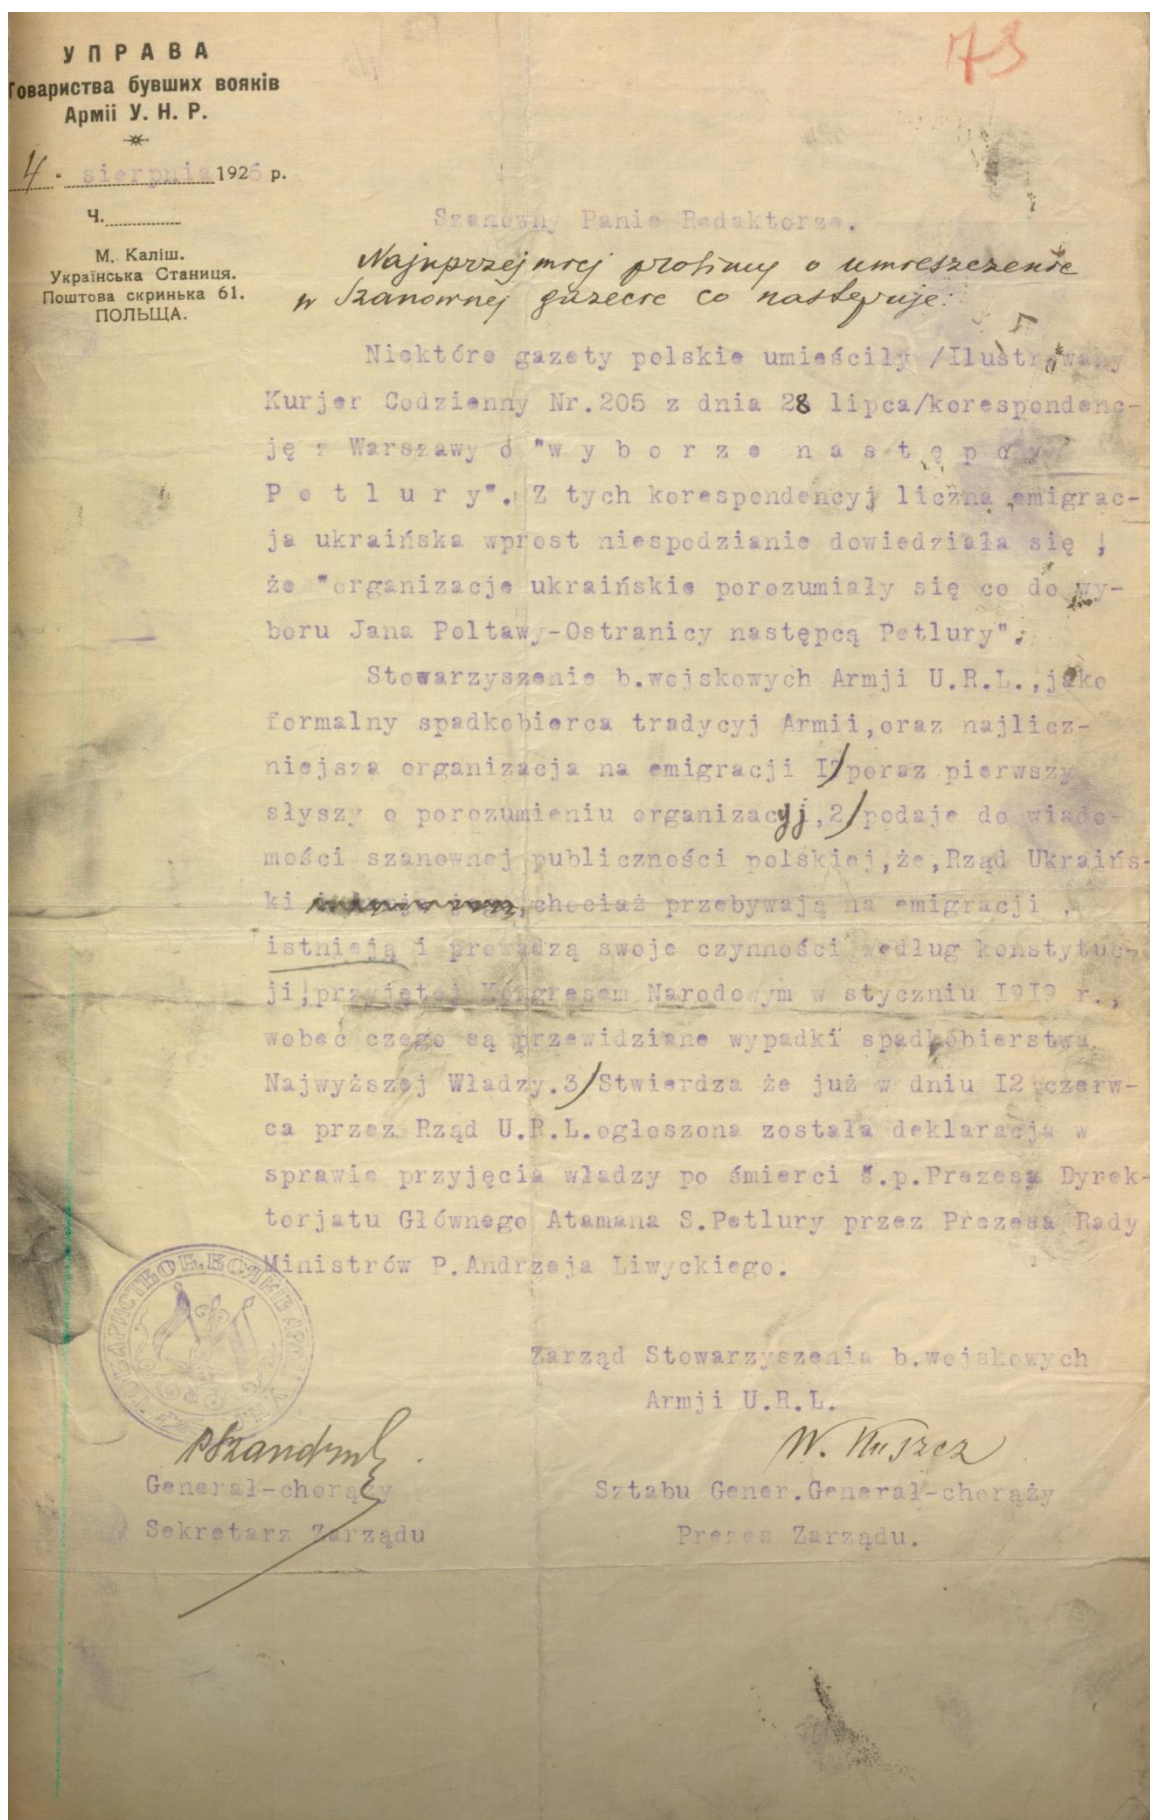 73
УПРАВА
Товариства бувших вояків
Армії У. Н. Р.
4 " sierpnia 1926 р.
Ч.
М. Каліш.
Українська Станиця.
Поштова скринька 61.
ПОЛЬЩА.
Szanowny Panie Redaktorze.
Najuprzejmiej prosimy o umieszczenie
w Szanownej gazecie co następuje:
Niektóre gazety polskie umieściły /Ilustrowany
Kurjer Codzienny Nr.205 z dnia 28 lipca/korespondenc-
ję z Warszawy o "wyborze następcy
Petlury". Z tych korespondencyj liczna emigrac-
ja ukraińska wprost niespodzianie dowiedziała się ,
że "organizacje ukraińskie porozumiały się co do wy-
boru Jana Poltawy-Ostranicy następcą Petlury".
Stowarzyszenie b.wojskowych Armji U.R.L.,jako
formalny spadkobierca tradycyj Armii,oraz najlicz-
niejsza organizacja na emigracji I/poraz pierwszy
słyszy o porozumieniu organizacyj,2/podaje do wiado-
mości szanownej publiczności polskiej,że,Rząd Ukraińs-
ki ,chociaż przebywają na emigracji ,
istnieją i prowadzą swoje czynności według konstytuc-
ji,przyjętej Kongresem Narodowym w styczniu I9I9 r.,
wobec czego są przewidziane wypadki spadkobierstwa
Najwyższej Władzy.3/Stwierdza że już w dniu I2 czerw-
ca przez Rząd U.R.L.ogłoszona została deklaracja w
sprawie przyjęcia władzy po śmierci ś.p.Prezesa Dyrek-
torjatu Głównego Atamana S.Petlury przez Prezesa Rady
Ministrów P.Andrzeja Liwyckiego.
Zarząd Stowarzyszenia b.wojskowych
Armji U.R.L.
PSzandruk
W. Kuszcz
Generał-chorąży
Sztabu Gener.Generał-chorąży
Sekretarz Zarządu
Prezes Zarządu.